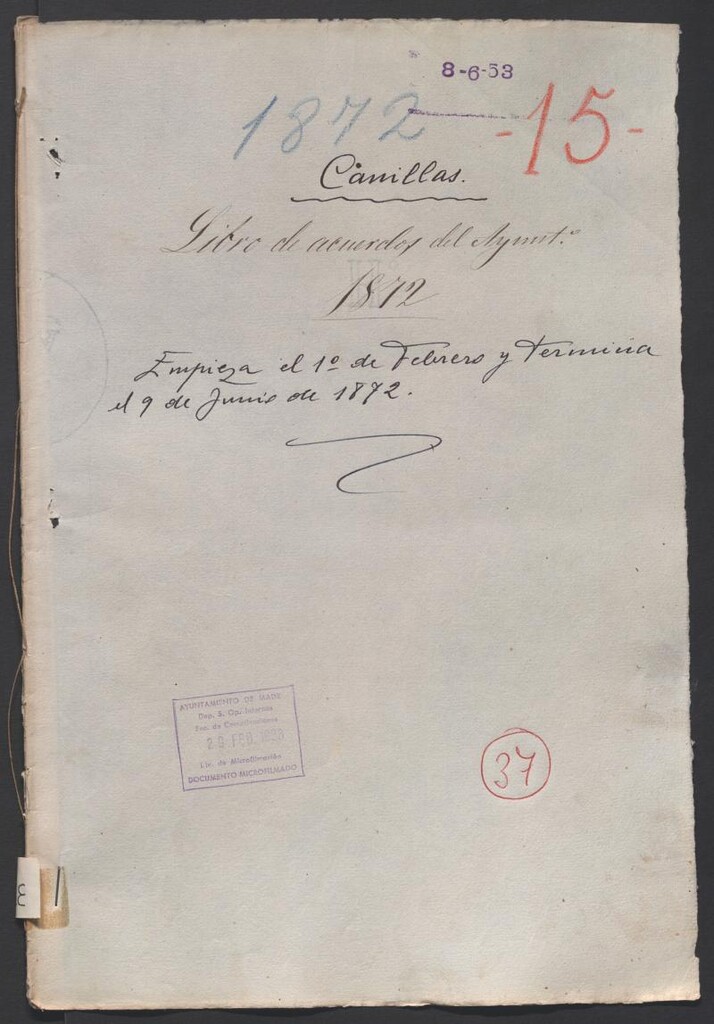 8-6-53
1872 -15-
Canillas.
Libro de acuerdos del Aymt.º
1872
Empieza el 1º de Febrero y termina
el 9 de Junio de 1872.
AYUNTAMIENTO DE MADRID
Dep. S. Op. Internas
Sec. de Comunicaciones
29 FEB.
Lic. de Microfilmación
DOCUMENTO MICROFILMADO
37
3